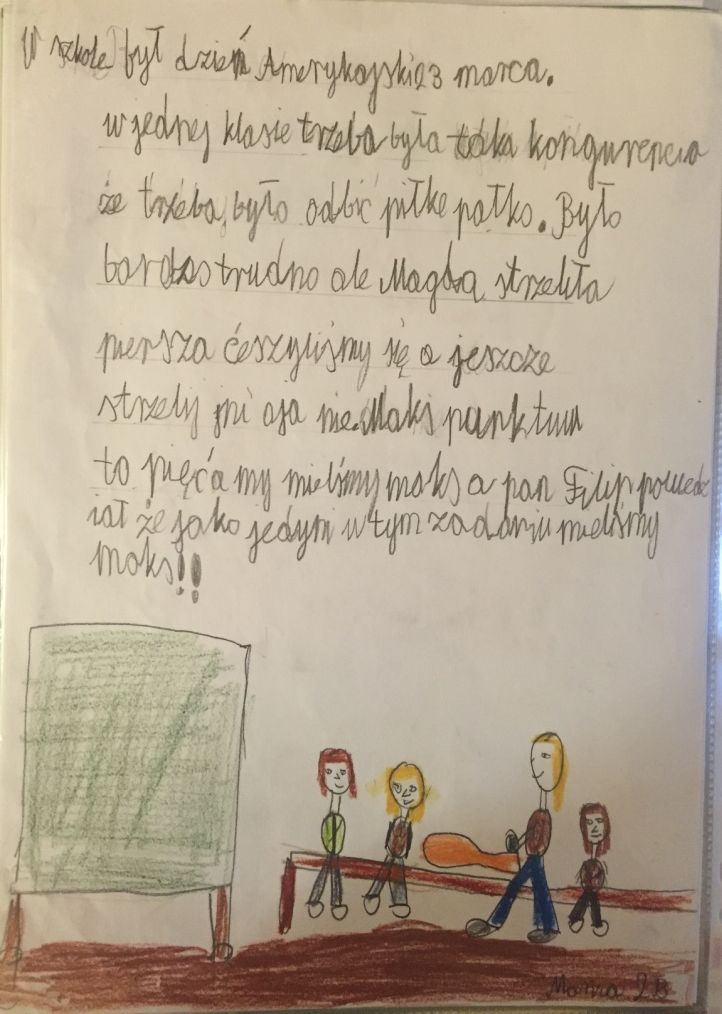 W szkole był dzień Amerykajski 23 marca.
w jednej klasie trzeba była taka kongurencia
że trzeba było odbić piłke pałko. Było
bardzo trudno ale Magda strzeliła
piersza ćeszyliśmy się a jeszcze
strzelij jni aja nie. Maks punktuw
to pięć a my mieliśmy maks a pan Filip powiedz
iał że jako jedyni w tym zadaniu mieliśmy
maks!!
2B